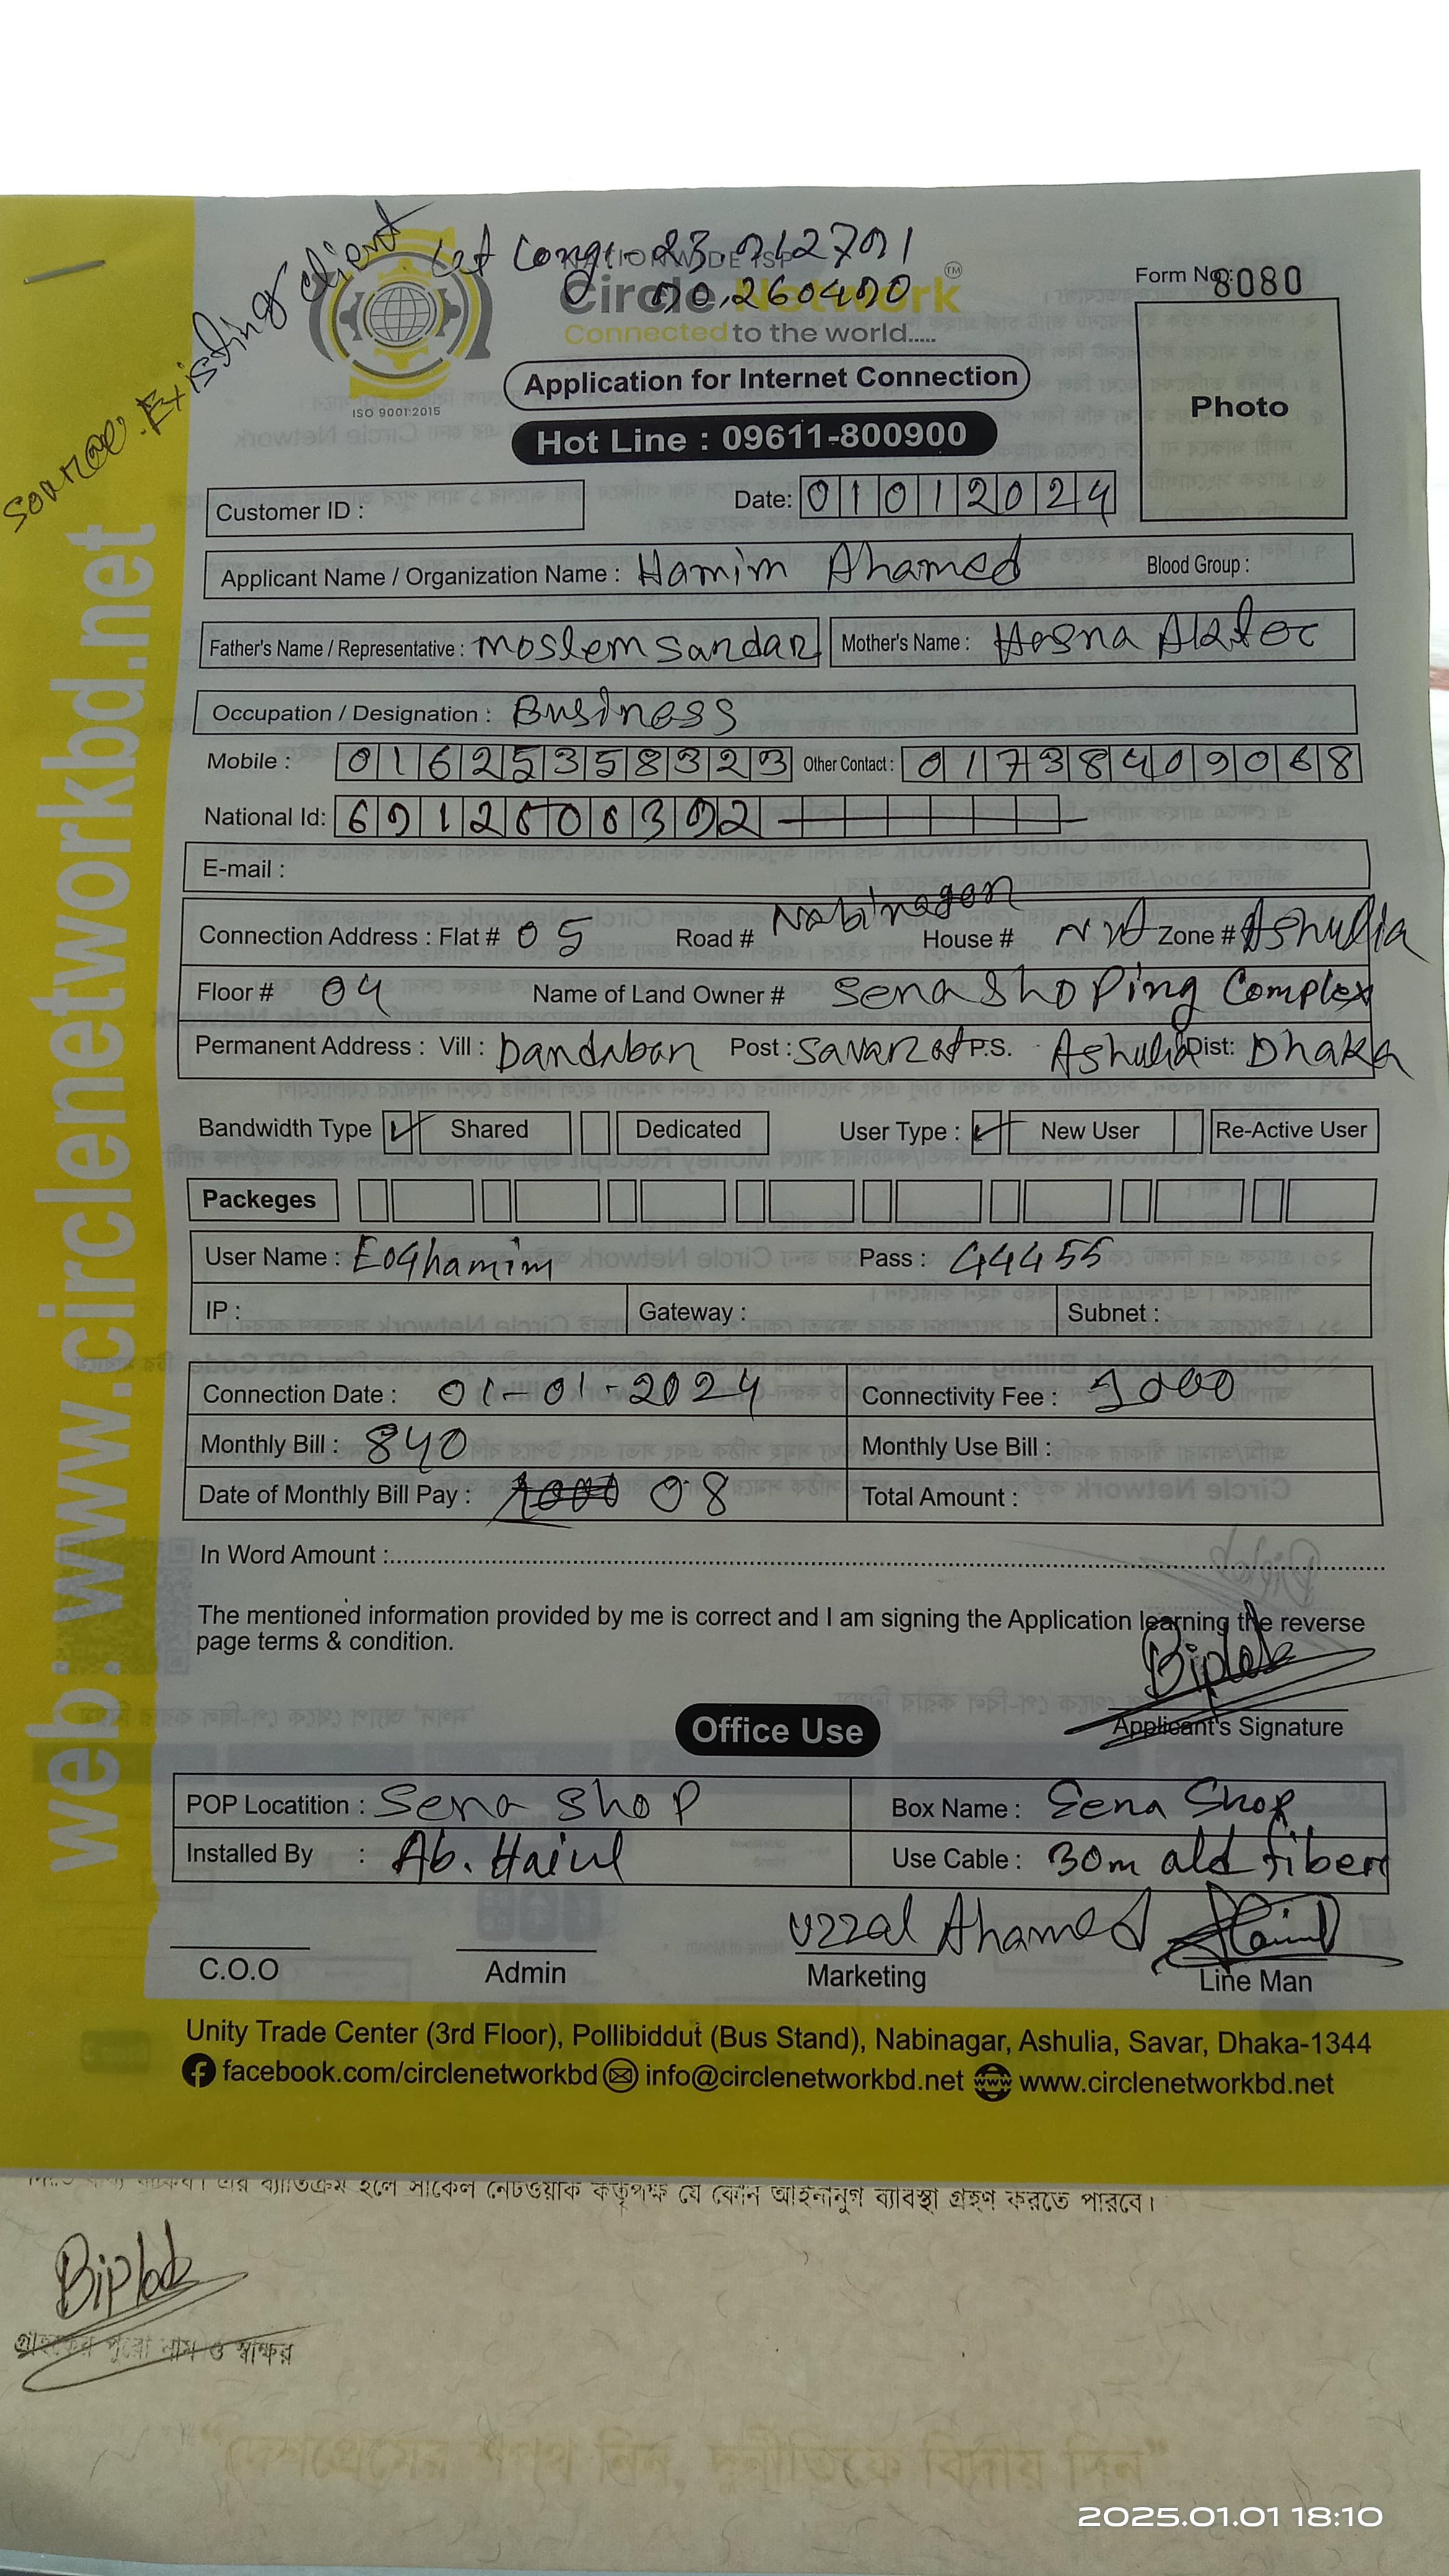 Source: Existing client
Lat Long:- 23.912791
90.260490
NATIONWIDE ISP
Circle Network TM
Connected to the world.....
ISO 9001:2015
Form No: 8080
Photo
Application for Internet Connection
Hot Line : 09611-800900
Customer ID :
Date: 01012024
Applicant Name / Organization Name : Hamim Ahamed Blood Group :
Father's Name / Representative : Moslem Sardar Mother's Name : Hosna Akter
Occupation / Designation : Business
Mobile : 01625358323 Other Contact : 01738409068
National Id:
E-mail :
Connection Address : Flat # 05 Road # Nabinagar House # N/A Zone # Ashulia
Floor # 04 Name of Land Owner # Sena Shoping Complex
Permanent Address : Vill : Dandabar Post : Savar P.S. Ashulia Dist: Dhaka
Bandwidth Type ✓ Shared Dedicated User Type : ✓ New User Re-Active User
Packeges
User Name : E04hamim Pass : 44455
IP : Gateway : Subnet :
Connection Date : 01-01-2024 Connectivity Fee : 1000
Monthly Bill : 840 Monthly Use Bill :
Date of Monthly Bill Pay : 08 Total Amount :
In Word Amount :
The mentioned information provided by me is correct and I am signing the Application learning the reverse
page terms & condition.
Biplob
Applicant's Signature
Office Use
POP Locatition : Sena Shop Box Name : Sena Shop
Installed By : Ab. Use Cable : 30m old fiber
Uzzal Ahamed
C.O.O Admin Marketing Line Man
Unity Trade Center (3rd Floor), Pollibiddut (Bus Stand), Nabinagar, Ashulia, Savar, Dhaka-1344
facebook.com/circlenetworkbd info@circlenetworkbd.net www.circlenetworkbd.net
web: www.circlenetworkbd.net
হলে সার্কেল নেটওয়ার্ক কর্তৃপক্ষ যে কোন আইনানুগ ব্যাবস্থা গ্রহণ করতে পারবে।
Biplob
গ্রাহকের পুরো নাম ও স্বাক্ষর
“দেশপ্রেমের শপথ নিন, দুর্নীতিকে বিদায় দিন”
2025.01.01 18:10